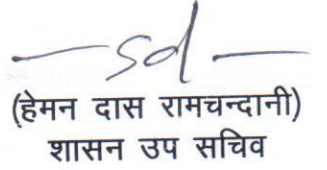 — sd —
(हेमन दास रामचन्दानी)
शासन उप सचिव